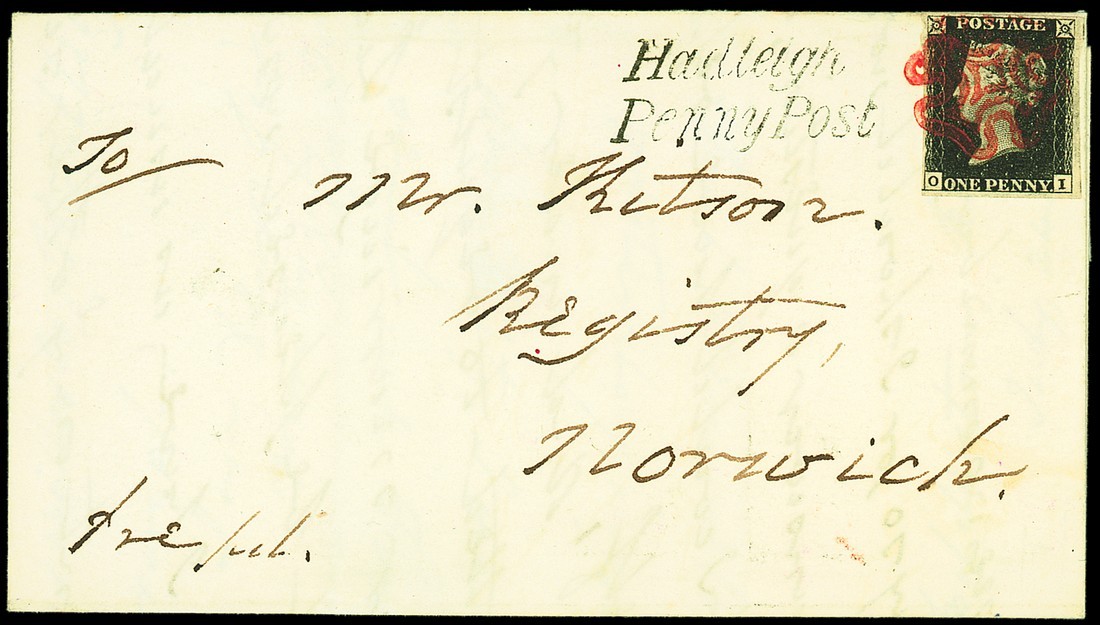 POSTAGE
Hadleigh
Penny Post
O ONE PENNY I
To
Mr. Kitson.
Registry,
Norwich.